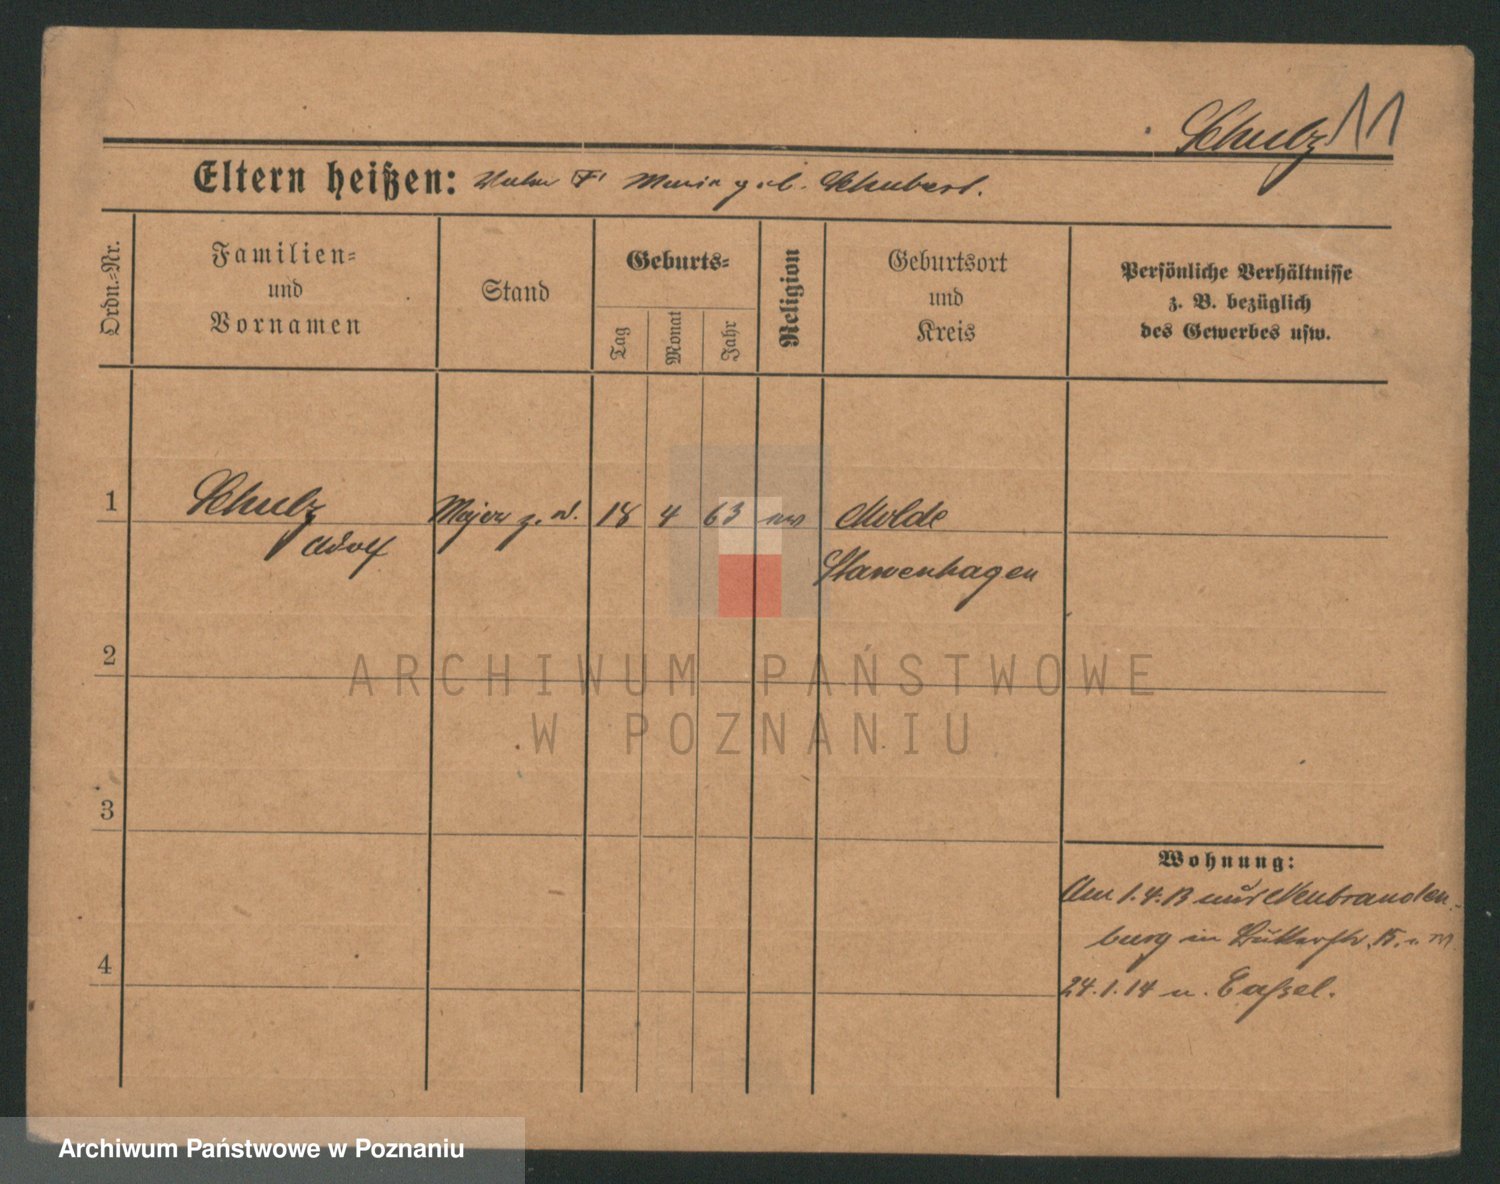 Schulz
Eltern heißen: Maria geb. Schubert.
Ordn.-Nr.
Familien-
und
Vornamen
Stand
Geburts-
Tag
Monat
Jahr
Religion
Geburtsort
und
Kreis
Persönliche Verhältnisse
z. B. bezüglich
des Gewerbes usw.
1
Schulz
Adolf
Major z. D.
18
4
63
ev
Stavenhagen
2
3
4
Wohnung:
Am 1.4.13 aus Neubranden-
burg in 15.
24.1.14 n. Caßel.
ARCHIWUM PAŃSTWOWE
W POZNANIU
Archiwum Państwowe w Poznaniu